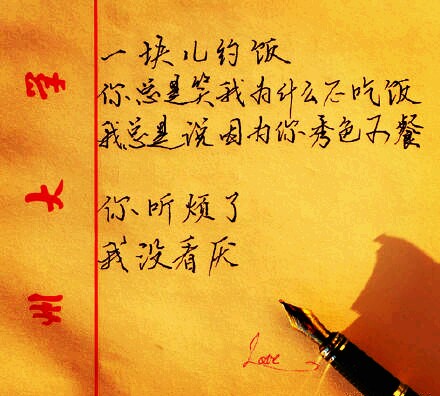 州大学
一块儿约饭
你总是笑我为什么不吃饭
我总是说因为你秀色可餐
你听烦了
我没看厌
Love